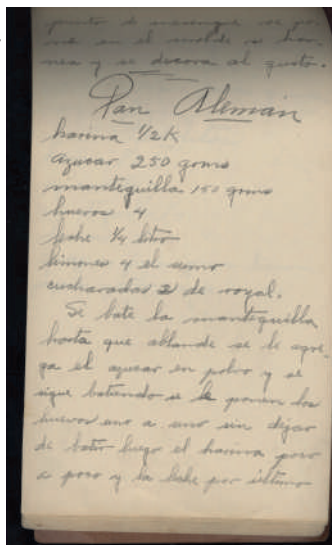 punto de merengue se po-
ne en el molde se hor-
nea y se decora al gusto.
Pan Aleman
harina 1/2 K
azucar 250 grms
mantequilla 150 grms
huevos 4
leche 1/4 litro
limones 4 el sumo
cucharadas 2 de royal.
Se bate la mantequilla
hasta que ablande se le agre-
ga el azucar en polvo y se
sigue batiendo se le ponen los
huevos uno a uno sin dejar
de batir luego el harina poco
a poco y la leche por ultimo